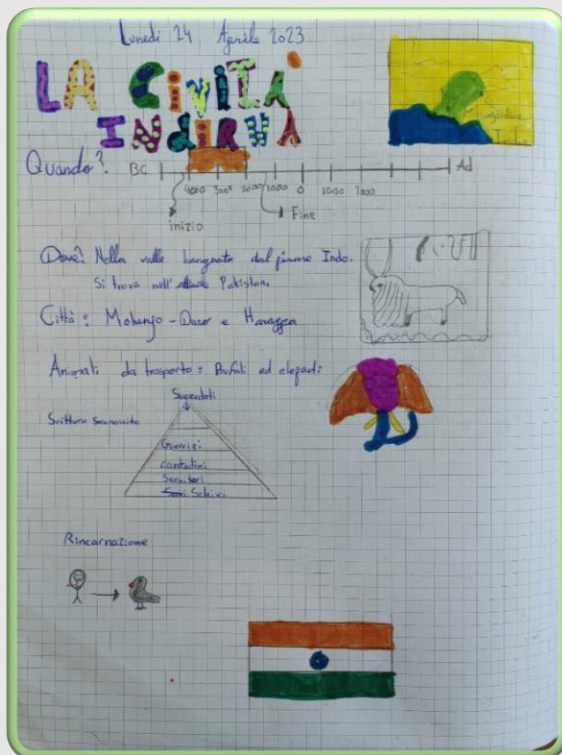 Lunedì 24 Aprile 2023
LA CiViTA'
INdiRVA
Quando?
BC
Ad
4000 3000 2000 1000 0 1000 2000
inizio
Fine
Indo
Dove? Nella valle bangnata dal fiume Indo.
Si trova nell' Pakistan.
Città: Mohanjo-Daro e Harappa
Animali da trasporto: Bufali ed elefanti
Sacerdoti
Scrittura
Guerrieri
Contadini
Servitori
Schiavi
Rincarnazione